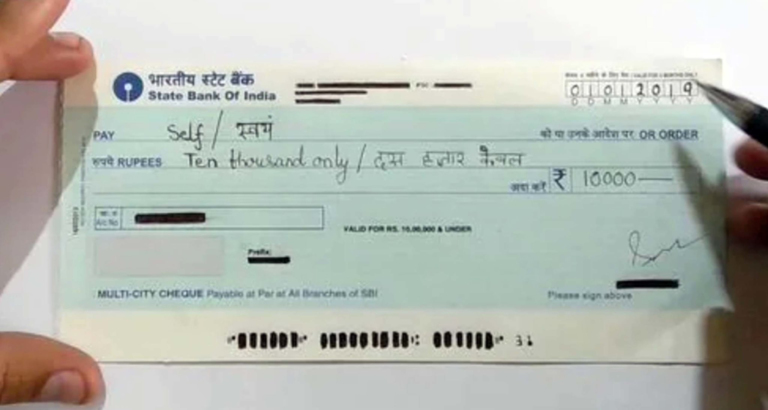 भारतीय स्टेट बैंक
State Bank Of India
01012019
D D M M Y Y Y Y
PAY Self / स्वयं को या उनके आदेश पर OR ORDER
रुपये RUPEES Ten thousand only / दस हजार केवल
अदा करें ₹ 10000
VALID FOR RS. 10,00,000 & UNDER
Prefix:
MULTI-CITY CHEQUE Payable at Par at All Branches of SBI
Please sign above
31